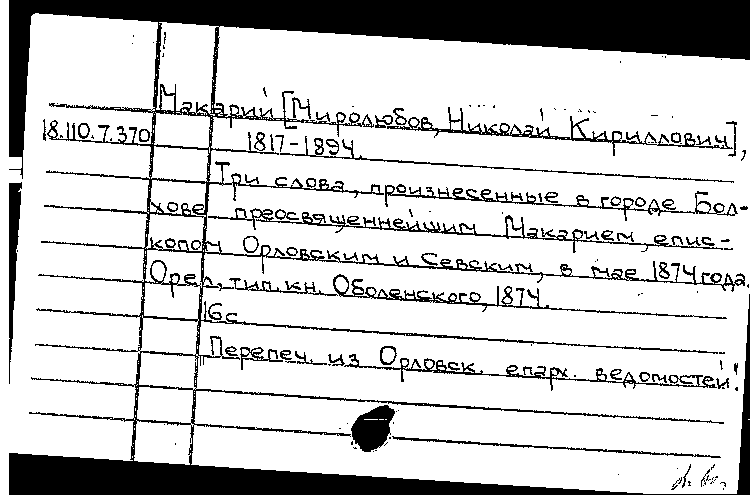 Макарий [Миролюбов, Николай Кириллович],
18.110.7.370 1817-1894.
Три слова, произнесенные в городе Бол-
хове преосвященнейшим Макарием, епис-
копом Орловским и Севским, в мае 1874 года.
Орел, тип. кн. Оболенского, 1874.
16с.
Перепеч. из Орловск. епарх. ведомостей.